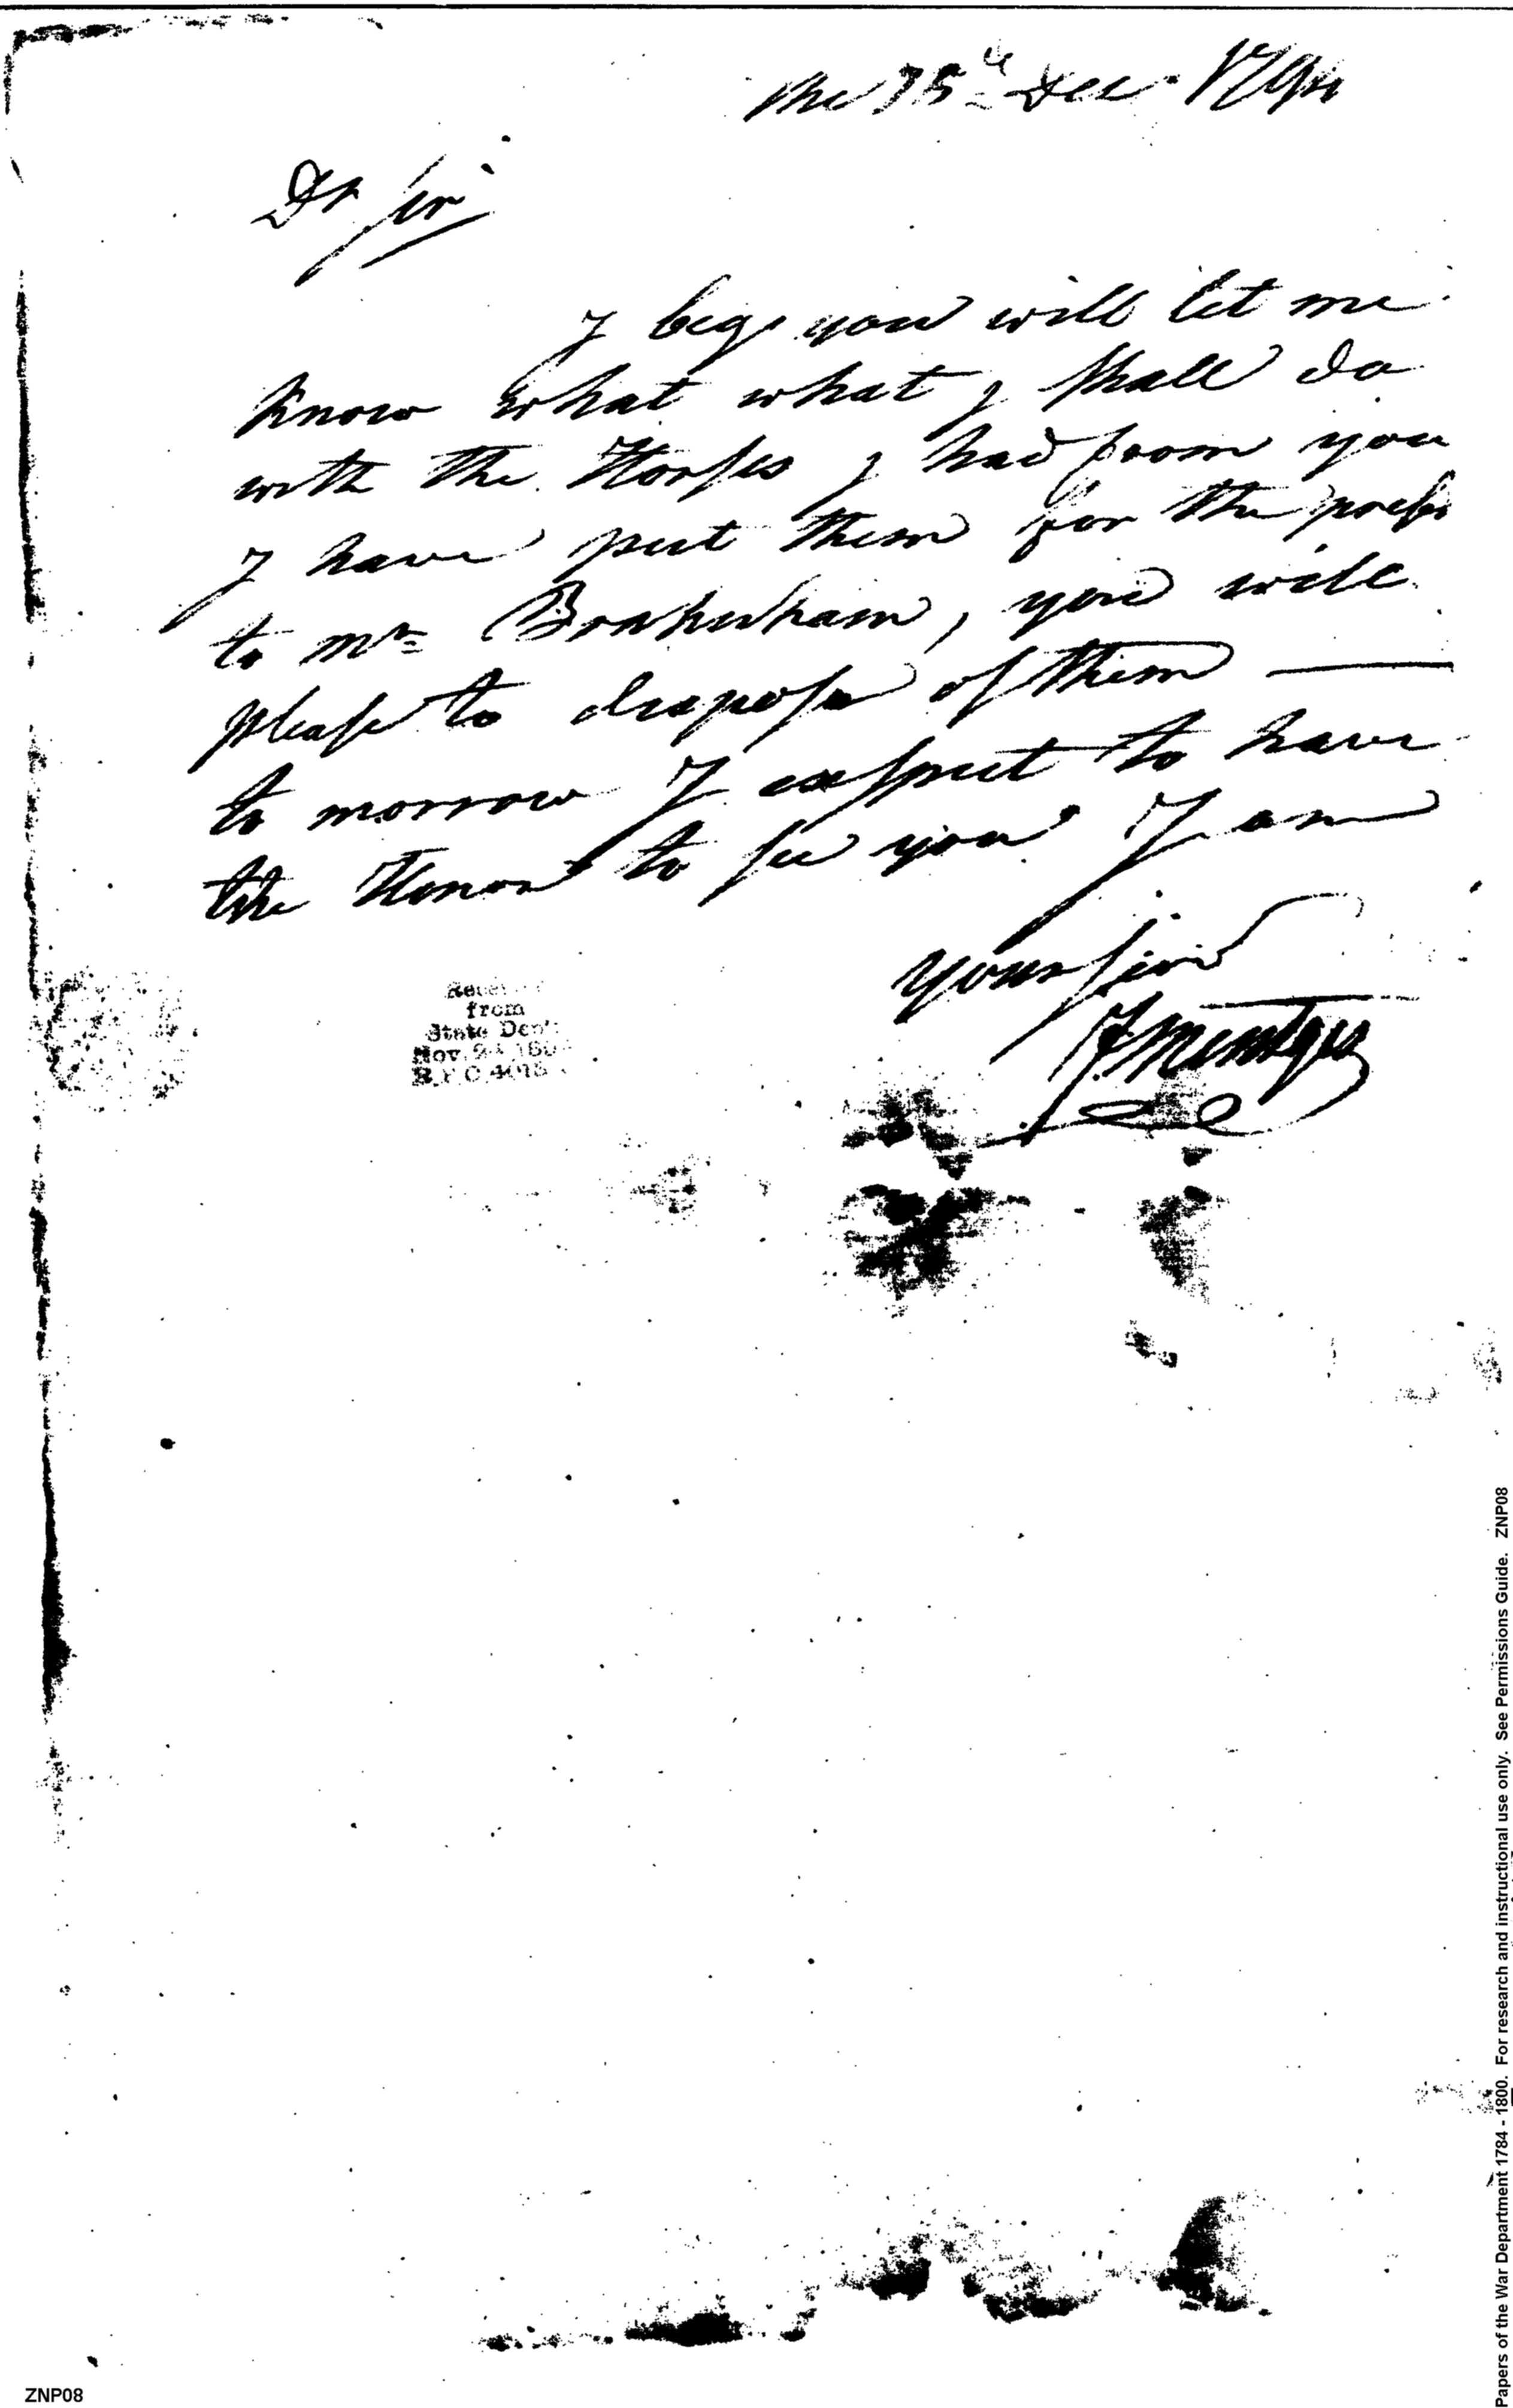 the 15th Dec. 1794
Dr Sir
I beg you will let me
know what what I shall do
with the Horses I had from you
I have put them for the
to Mr , you will
please to dispose of them —
to morrow I expect to have
the Honor to see you I am
your Sir
F Mentges
from
State Dep't
Nov. 24
ZNP08
Papers of the War Department 1784 - 1800. For research and instructional use only. See Permissions Guide. ZNP08